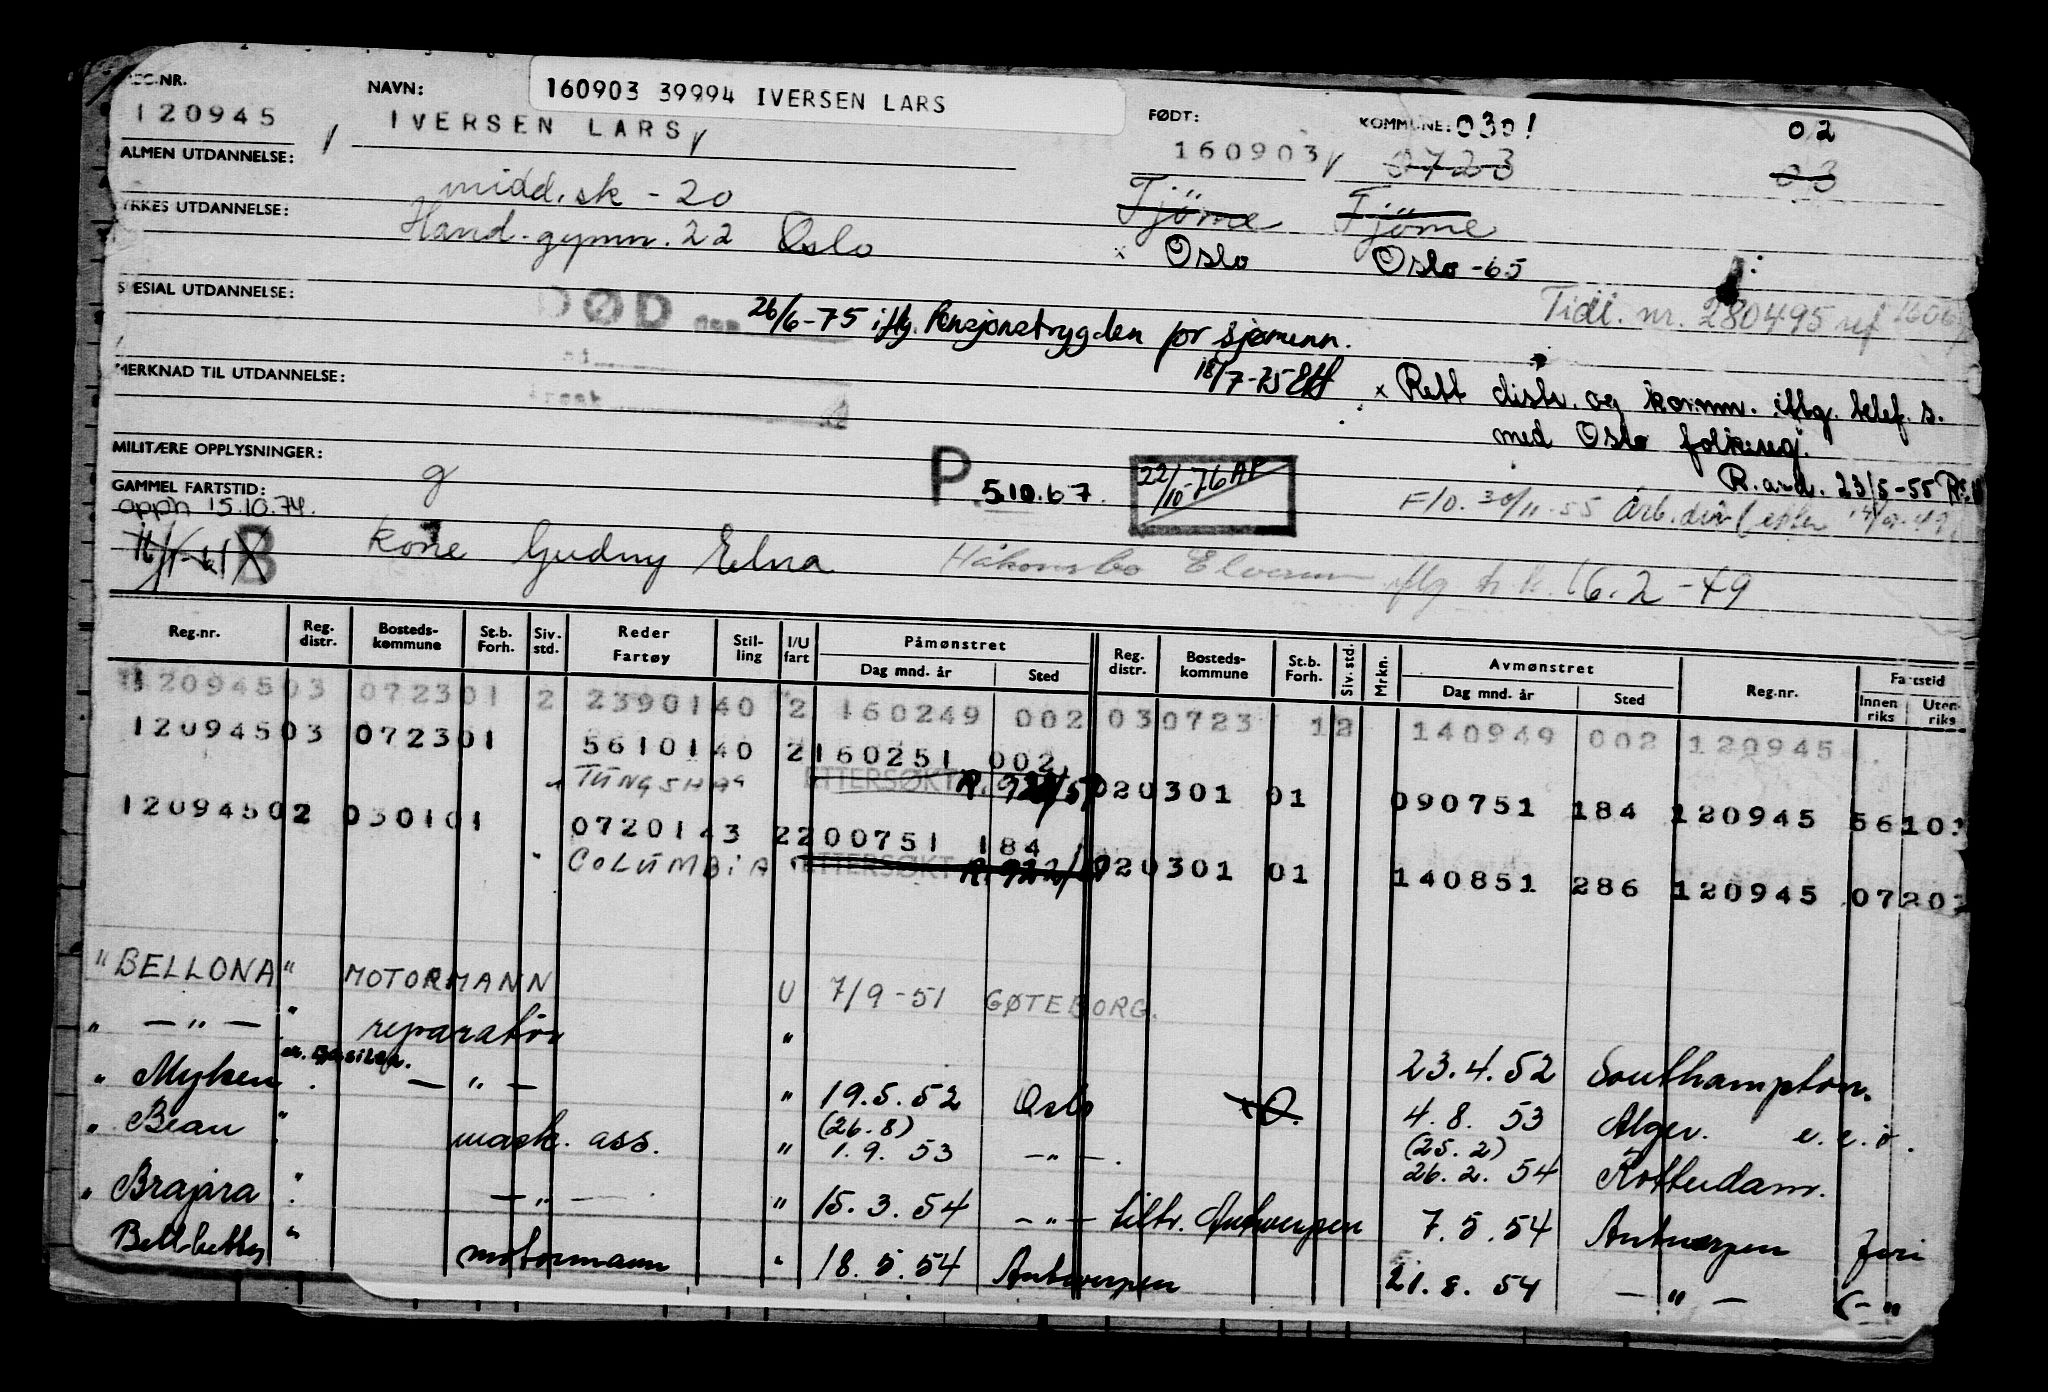 REG.NR. NAVN: 160903 39994 IVERSEN LARS FØDT: KOMMUNE: 0301 02
120945 IVERSEN LARS 160903 0723 03
ALMEN UTDANNELSE: midd.sk - 20 Tjöme Tjöme
YRKES UTDANNELSE: Hand. gymn. 22 Oslo x Oslo Oslo -65
SPESIAL UTDANNELSE: DØD 26/6-75 iflg. Pensjonstrygden for sjømenn. Tidl. nr. 280495
18/7-75
MERKNAD TIL UTDANNELSE: x Rett distr. og komm. iflg. telef. s.
med Oslo folkereg.
MILITÆRE OPPLYSNINGER: g P. 5.10.67. 22/10-76 R. avd. 23/5-55
GAMMEL FARTSTID: F/O. 30/11-55 Arb.dir
opph 15.10.74.
B kone Gudny Elna Håkonsbo Elverum iflg 16.2-49
Reg.nr. Reg. distr. Bosteds-kommune St.b. Forh. Siv. std. Reder Fartøy Stil-ling I/U fart Påmønstret Dag mnd. år Sted Reg. distr. Bosteds-kommune St.b. Forh. Siv. std. Mrkn. Avmønstret Dag mnd. år Sted Reg.nr. Fartstid Innen riks Uten riks
120945 03 0723 01 2 23901 40 2 160249 002 03 0723 1 2 140949 002 120945
120945 03 0723 01 56101 40 2 160251 002
TUNGSHA ETTERSØKT 02 0301 01 090751 184 120945 56101
120945 02 0301 01 07201 43 2 200751 184
COLUMBIA ETTERSØKT R. 922/ 02 0301 01 140851 286 120945 07201
" BELLONA " MOTORMANN U 7/9-51 GØTEBORG.
" — " — " reparatør " 23.4.52 Southampton.
" Myken " — " — " 19.5.52 Oslo 4.8.53 Alger. e.e.o.
(26.8) (25.2)
" Beau " mask. ass. " 1.9.53 — " — . 26.2.54 Rotterdam.
" Brajara " — " — " 15.3.54 — " — tiltr. Antwerpen 7.5.54 Antwerpen
Bell-betty " motormann " 18.5.54 Antwerpen 21.8.54 — " —